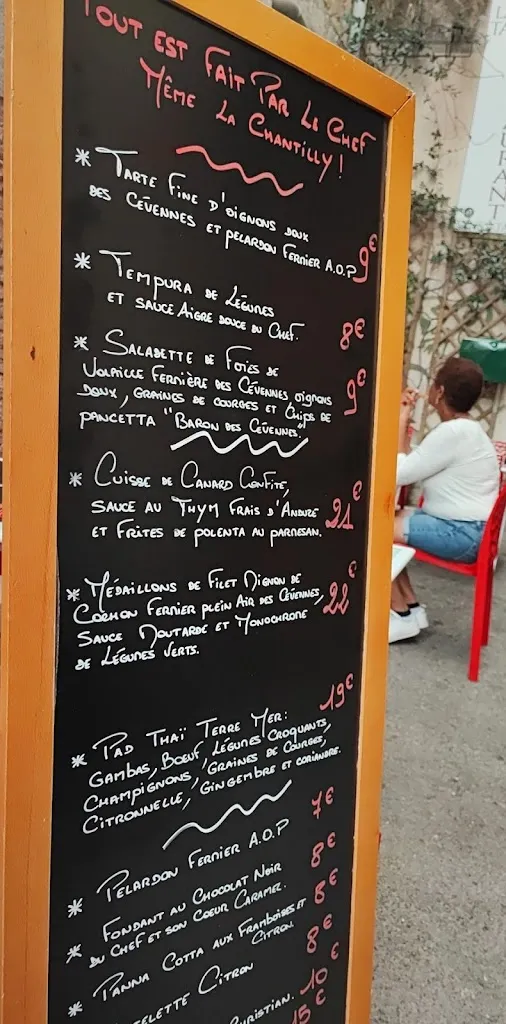 TOUT EST FAIT PAR LE CHEF
MÊME LA CHANTILLY !
* TARTE FINE D'OIGNONS DOUX
DES CÉVENNES ET PELARDON FERMIER A.O.P 9€
* TEMPURA DE LÉGUMES
ET SAUCE AIGRE DOUCE DU CHEF. 8€
* SALADETTE DE FOIES DE
VOLAILLE FERMIÈRE DES CÉVENNES OIGNONS
DOUX, GRAINES DE COURGES ET CHIPS DE
PANCETTA "BARON DES CÉVENNES." 9€
* CUISSE DE CANARD CONFITE,
SAUCE AU THYM FRAIS D'ANDUZE
ET FRITES DE POLENTA AU PARMESAN. 21€
* MÉDAILLONS DE FILET MIGNON DE
COCHON FERMIER PLEIN AIR DES CÉVENNES,
SAUCE MOUTARDE ET MONOCHROME
DE LÉGUMES VERTS. 22€
* PAD THAÏ TERRE MER : 19€
GAMBAS, BOEUF, LÉGUMES CROQUANTS,
CHAMPIGNONS, GRAINES DE COURGES,
CITRONNELLE, GINGEMBRE ET CORIANDRE.
* PELARDON FERMIER A.O.P 7€
* FONDANT AU CHOCOLAT NOIR
DU CHEF ET SON COEUR CARAMEL. 8€
* PANNA COTTA AUX FRAMBOISES ET
CITRON. 8€
CITRON 8€
CHRISTIAN. 10€
15€